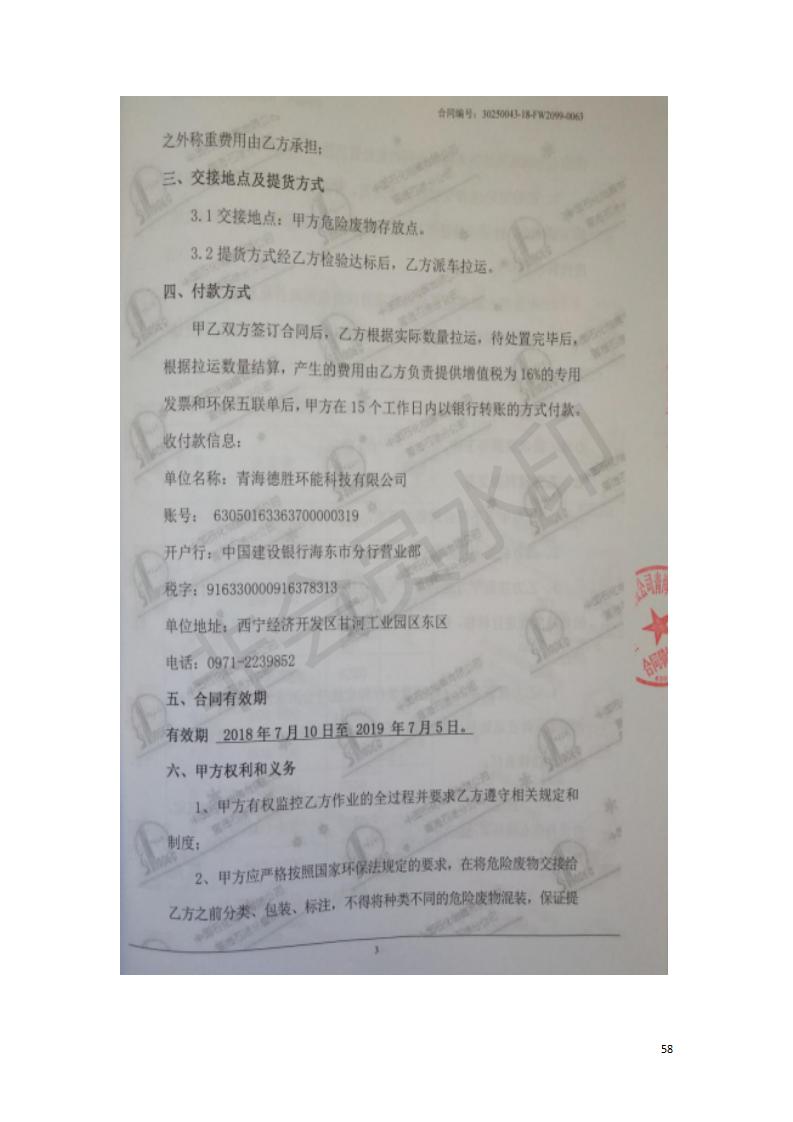 合同编号：30250043-18-FW2099-0063
之外称重费用由乙方承担；
三、交接地点及提货方式
3.1 交接地点：甲方危险废物存放点。
3.2 提货方式经乙方检验达标后，乙方派车拉运。
四、付款方式
甲乙双方签订合同后，乙方根据实际数量拉运，待处置完毕后，
根据拉运数量结算，产生的费用由乙方负责提供增值税为 16%的专用
发票和环保五联单后，甲方在 15 个工作日内以银行转账的方式付款。
收付款信息：
单位名称：青海德胜环能科技有限公司
账号： 63050163363700000319
开户行：中国建设银行海东市分行营业部
税字：916330000916378313
单位地址：西宁经济开发区甘河工业园区东区
电话：0971-2239852
五、合同有效期
有效期 2018 年 7 月 10 日至 2019 年 7 月 5 日。
六、甲方权利和义务
1、甲方有权监控乙方作业的全过程并要求乙方遵守相关规定和
制度；
2、甲方应严格按照国家环保法规定的要求，在将危险废物交接给
乙方之前分类、包装、标注，不得将种类不同的危险废物混装，保证提
3
非会员水印
58